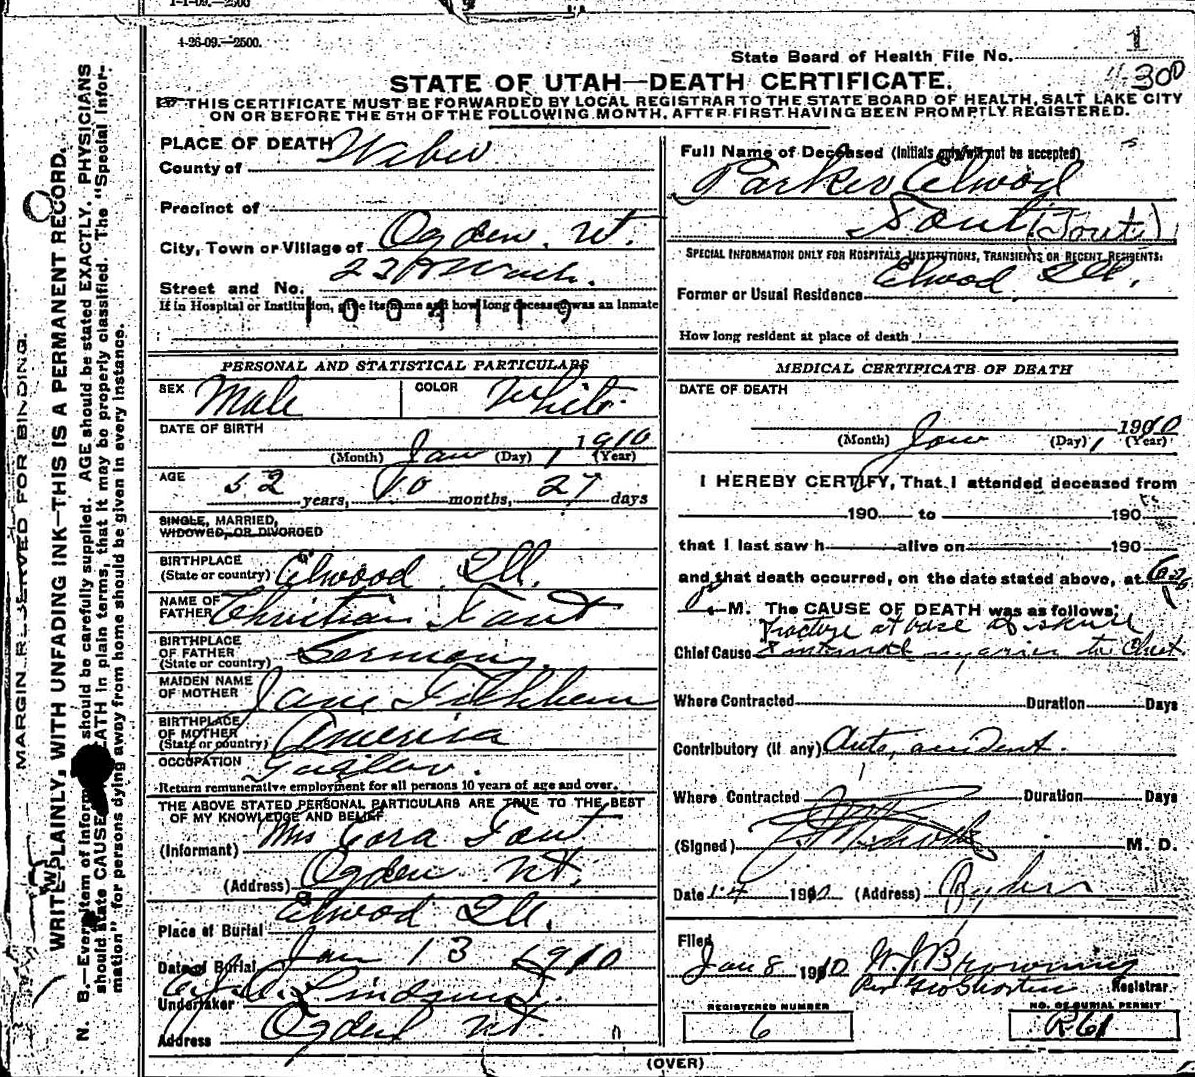 1-1-09.—2500
4-26-09.—2500.
1
State Board of Health File No.
300
STATE OF UTAH—DEATH CERTIFICATE.
THIS CERTIFICATE MUST BE FORWARDED BY LOCAL REGISTRAR TO THE STATE BOARD OF HEALTH, SALT LAKE CITY
ON OR BEFORE THE 5TH OF THE FOLLOWING MONTH, AFTER FIRST HAVING BEEN PROMPTLY REGISTERED.
MARGIN RESERVED FOR BINDING.
WRITE PLAINLY, WITH UNFADING INK—THIS IS A PERMANENT RECORD.
N. B.—Every item of information should be carefully supplied. AGE should be stated EXACTLY. PHYSICIANS
should state CAUSE OF DEATH in plain terms, that it may be properly classified. The "Special Infor-
mation" for persons dying away from home should be given in every instance.
PLACE OF DEATH
County of Weber
Precinct of
City, Town or Village of Ogden. Ut.
Street and No. Wash.
If in Hospital or Institution, give its name and how long deceased was an inmate
1004119
PERSONAL AND STATISTICAL PARTICULARS
SEX Male COLOR White
DATE OF BIRTH
(Month) Jan (Day) 1 1910 (Year)
AGE 52 years, 10 months, 27 days
SINGLE, MARRIED,
WIDOWED, OR DIVORCED
BIRTHPLACE
(State or country) Elwood Ill.
NAME OF
FATHER Christian Tout
BIRTHPLACE
OF FATHER
(State or country) Germany
MAIDEN NAME
OF MOTHER Jane
BIRTHPLACE
OF MOTHER
(State or country) America
OCCUPATION
Return remunerative employment for all persons 10 years of age and over.
THE ABOVE STATED PERSONAL PARTICULARS ARE TRUE TO THE BEST
OF MY KNOWLEDGE AND BELIEF
(Informant) Mrs Cora Tout
(Address) Ogden Ut.
Place of Burial Elwood Ill.
Date of Burial Jan 13 1910
Undertaker Lindquist
Address Ogden Ut.
Full Name of Deceased (Initials only will not be accepted)
Parker Elwood
Tout (Tout)
SPECIAL INFORMATION ONLY FOR HOSPITALS, INSTITUTIONS, TRANSIENTS OR RECENT RESIDENTS:
Former or Usual Residence Elwood Ill.
How long resident at place of death
MEDICAL CERTIFICATE OF DEATH
DATE OF DEATH
(Month) Jan (Day) 1 1910 (Year)
I HEREBY CERTIFY, That I attended deceased from
190 to 190
that I last saw h alive on 190
and that death occurred, on the date stated above, at
M. The CAUSE OF DEATH was as follows:
Fracture at base of skull
Chief Cause & internal injuries to Chest
Where Contracted Duration Days
Contributory (if any) Auto, accident.
Where Contracted Duration Days
(Signed) M. D.
Date 1-4 1910 (Address) Ogden
Filed
Jan 8 1910 W. J. Browning
Per Geo Shorten Registrar
REGISTERED NUMBER
6
NO. OF BURIAL PERMIT
R-61
(OVER)